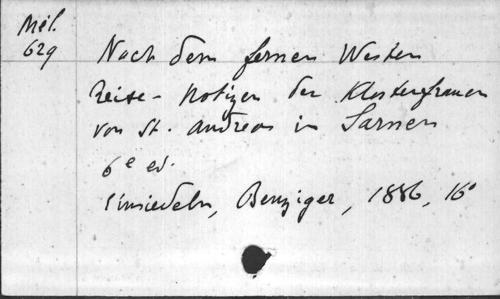 Mél.
629
Nach dem fernen Westen
Reise-Notizen der Klosterfrauen
von St. Andreas in Sarnen
6e ed.
Einsiedeln, Benziger, 1886, 16°